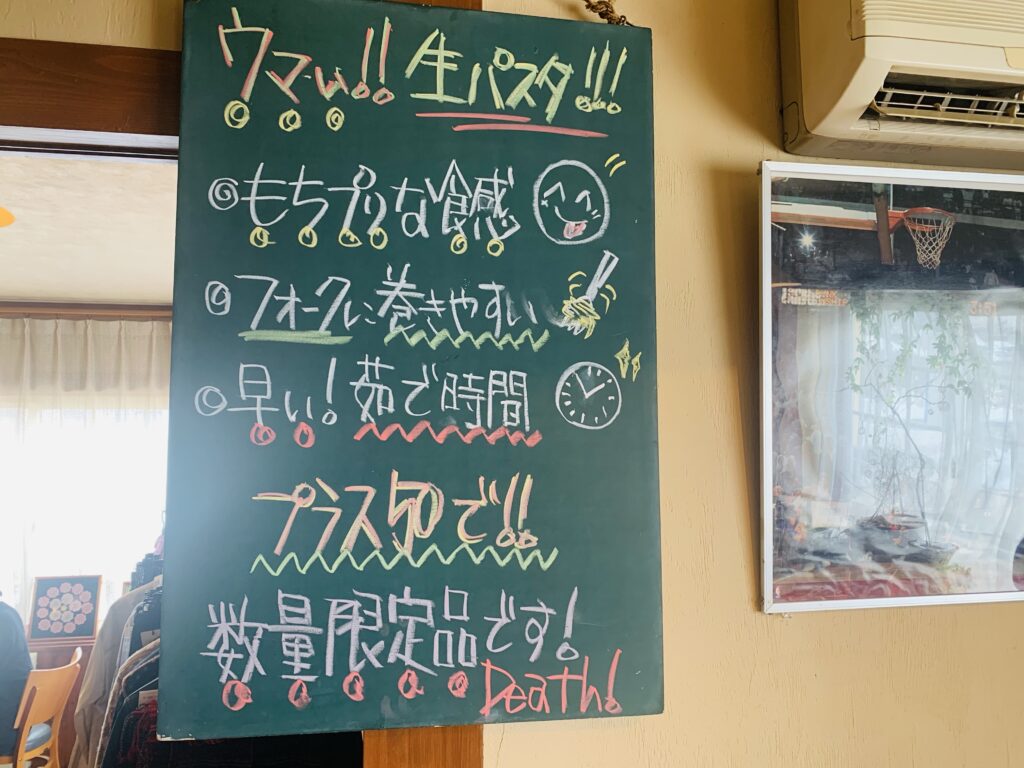 ウマい!! 生パスタ!!!
◎もちプリな食感
◎フォークに巻きやすい
◎早い!茹で時間
プラス50で!!
数量限定品です!
Death!